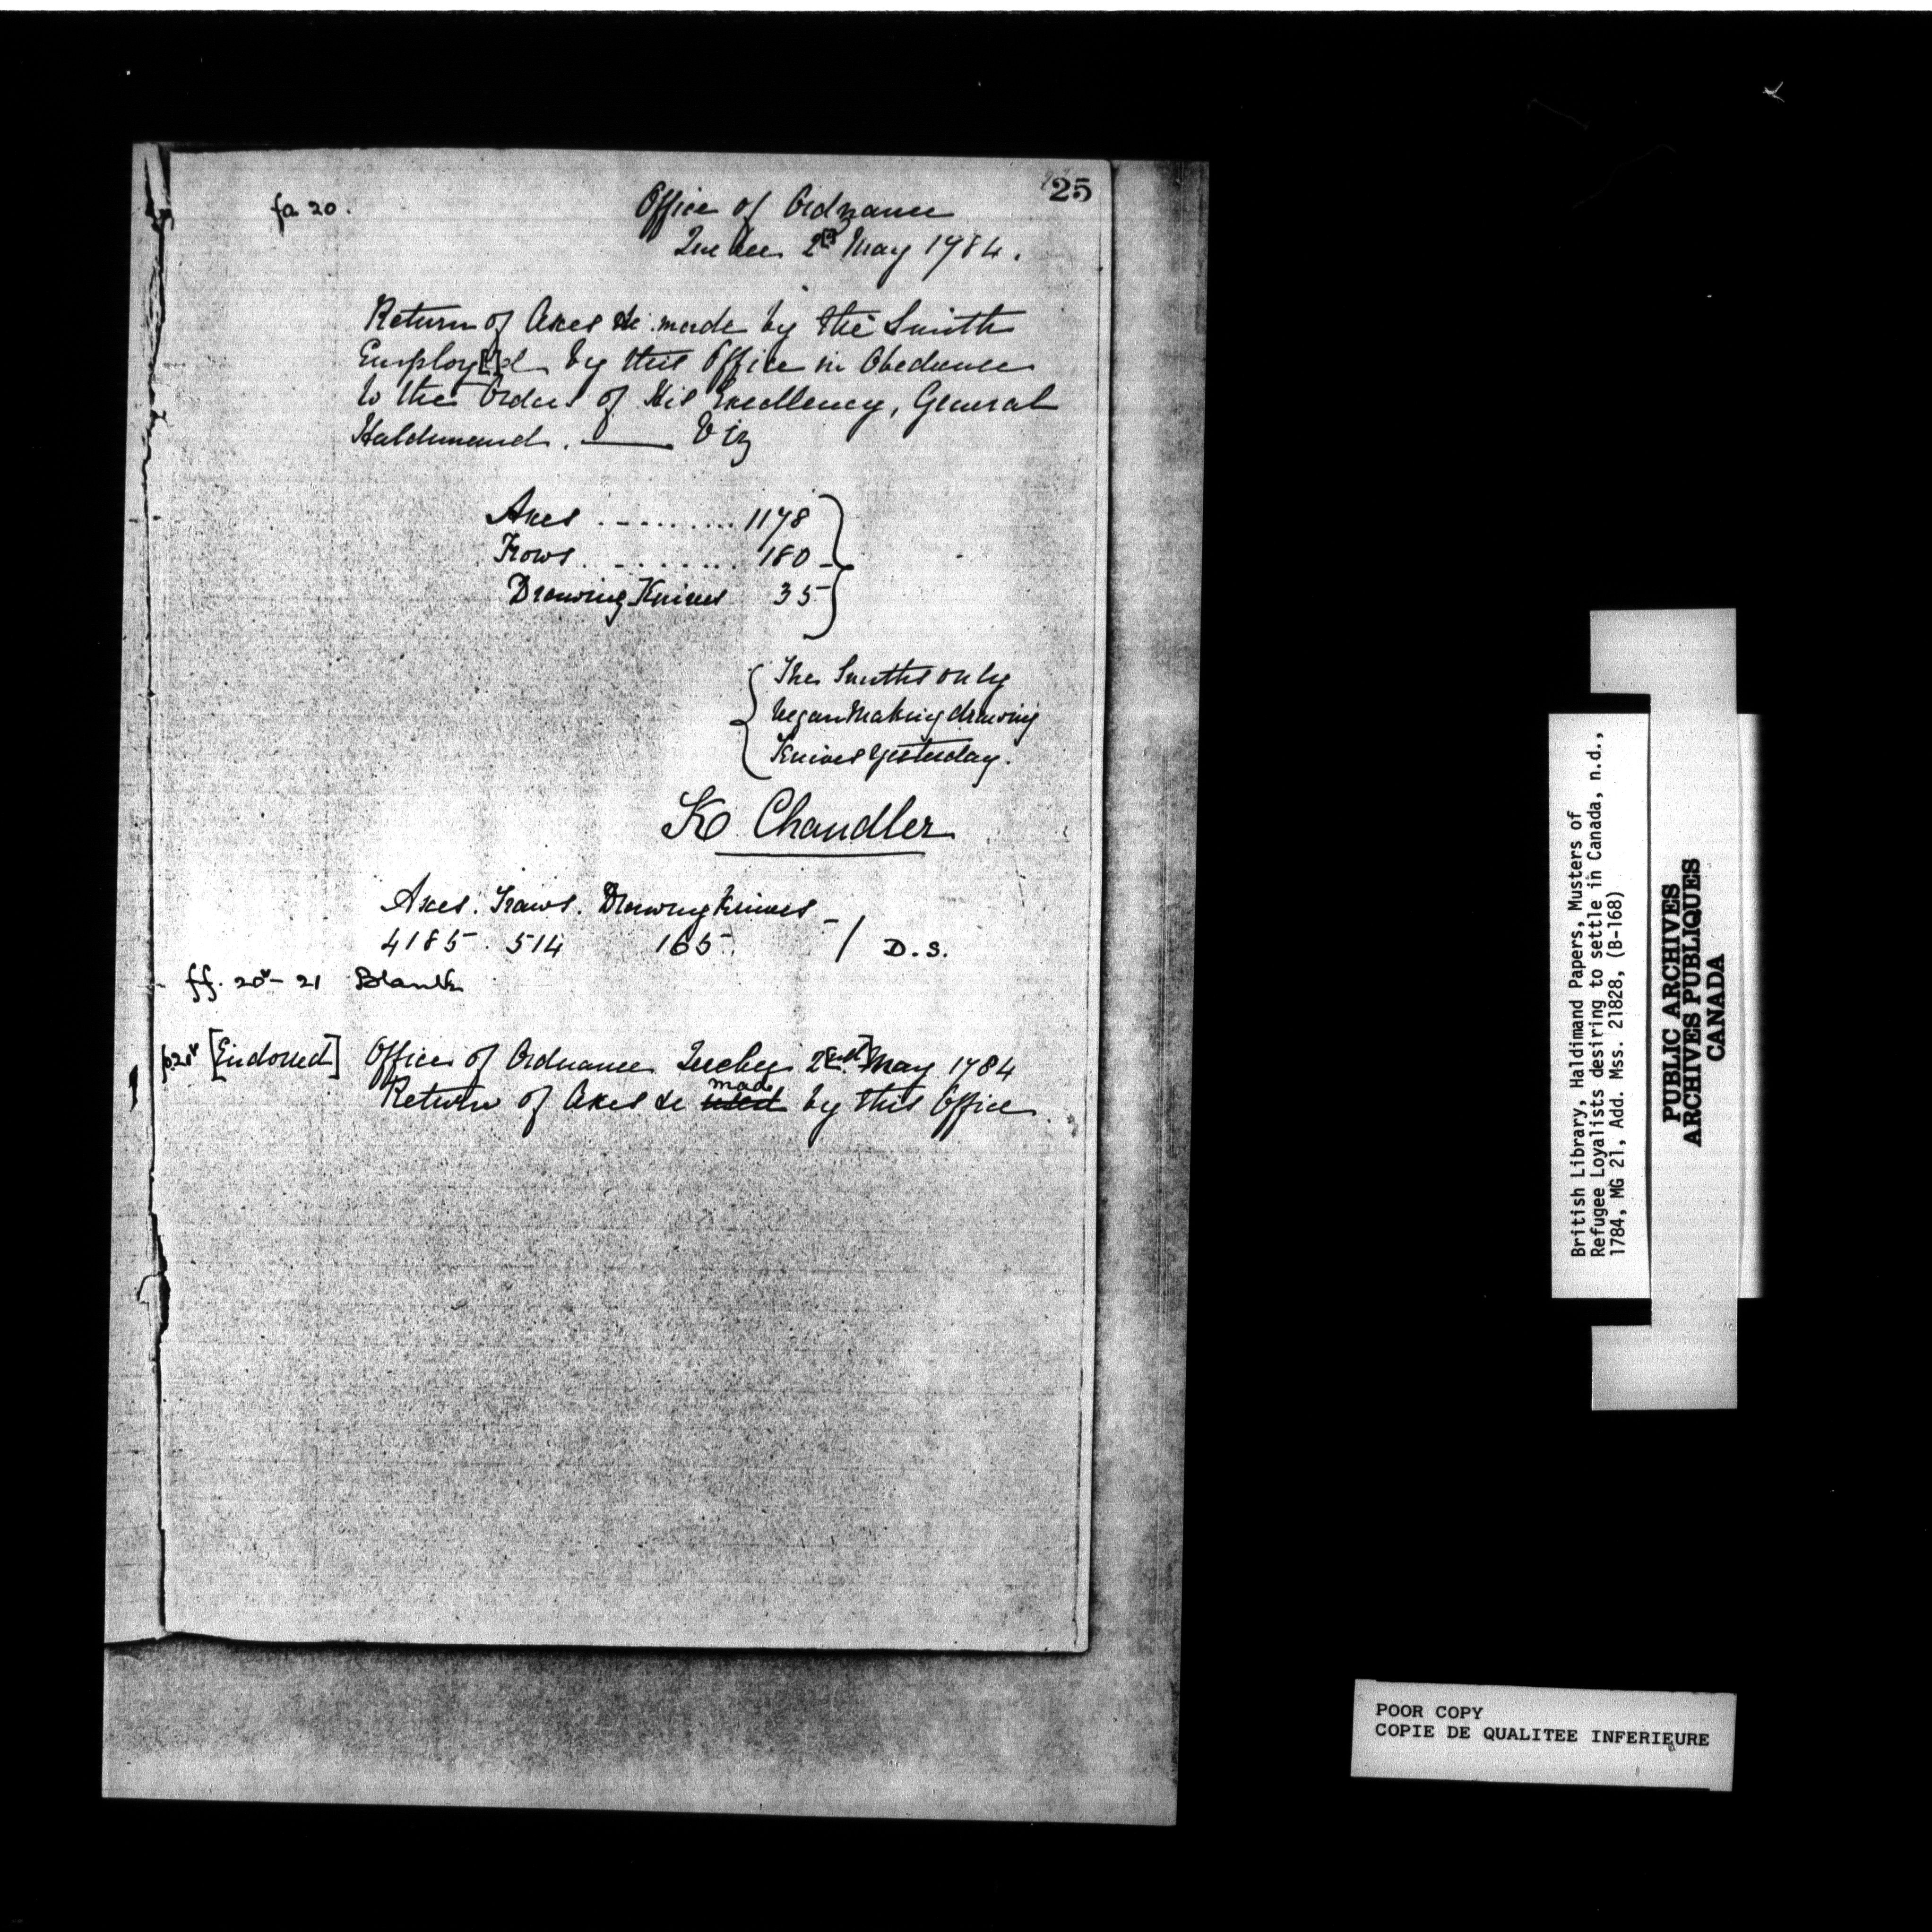 25
fo 20.
Office of Ordnance
Quebec 2[d] May 1784.
Return of Axes &c. made by the Smith
Employ[e]d by this Office in Obedience
to the Orders of His Excellency, General
Haldimand. —— Viz
Axes .......... 1178
Frows .......... 180
Drawing Knives 35
The Smiths only
began Making drawing
Knives yesterday.
K Chandler
Axes. Fraws. Drawing Knives
4185. 514 165. / D.S.
ff. 20v - 21 Blank
fo. 21v [Endorsed] Office of Ordnance Quebec 2[nd]. May 1784
Return of Axes &c made by this Office
British Library, Haldimand Papers, Musters of
Refugee Loyalists desiring to settle in Canada, n.d.,
1784, MG 21, Add. Mss. 21828, (B-168)
PUBLIC ARCHIVES
ARCHIVES PUBLIQUES
CANADA
POOR COPY
COPIE DE QUALITEE INFERIEURE